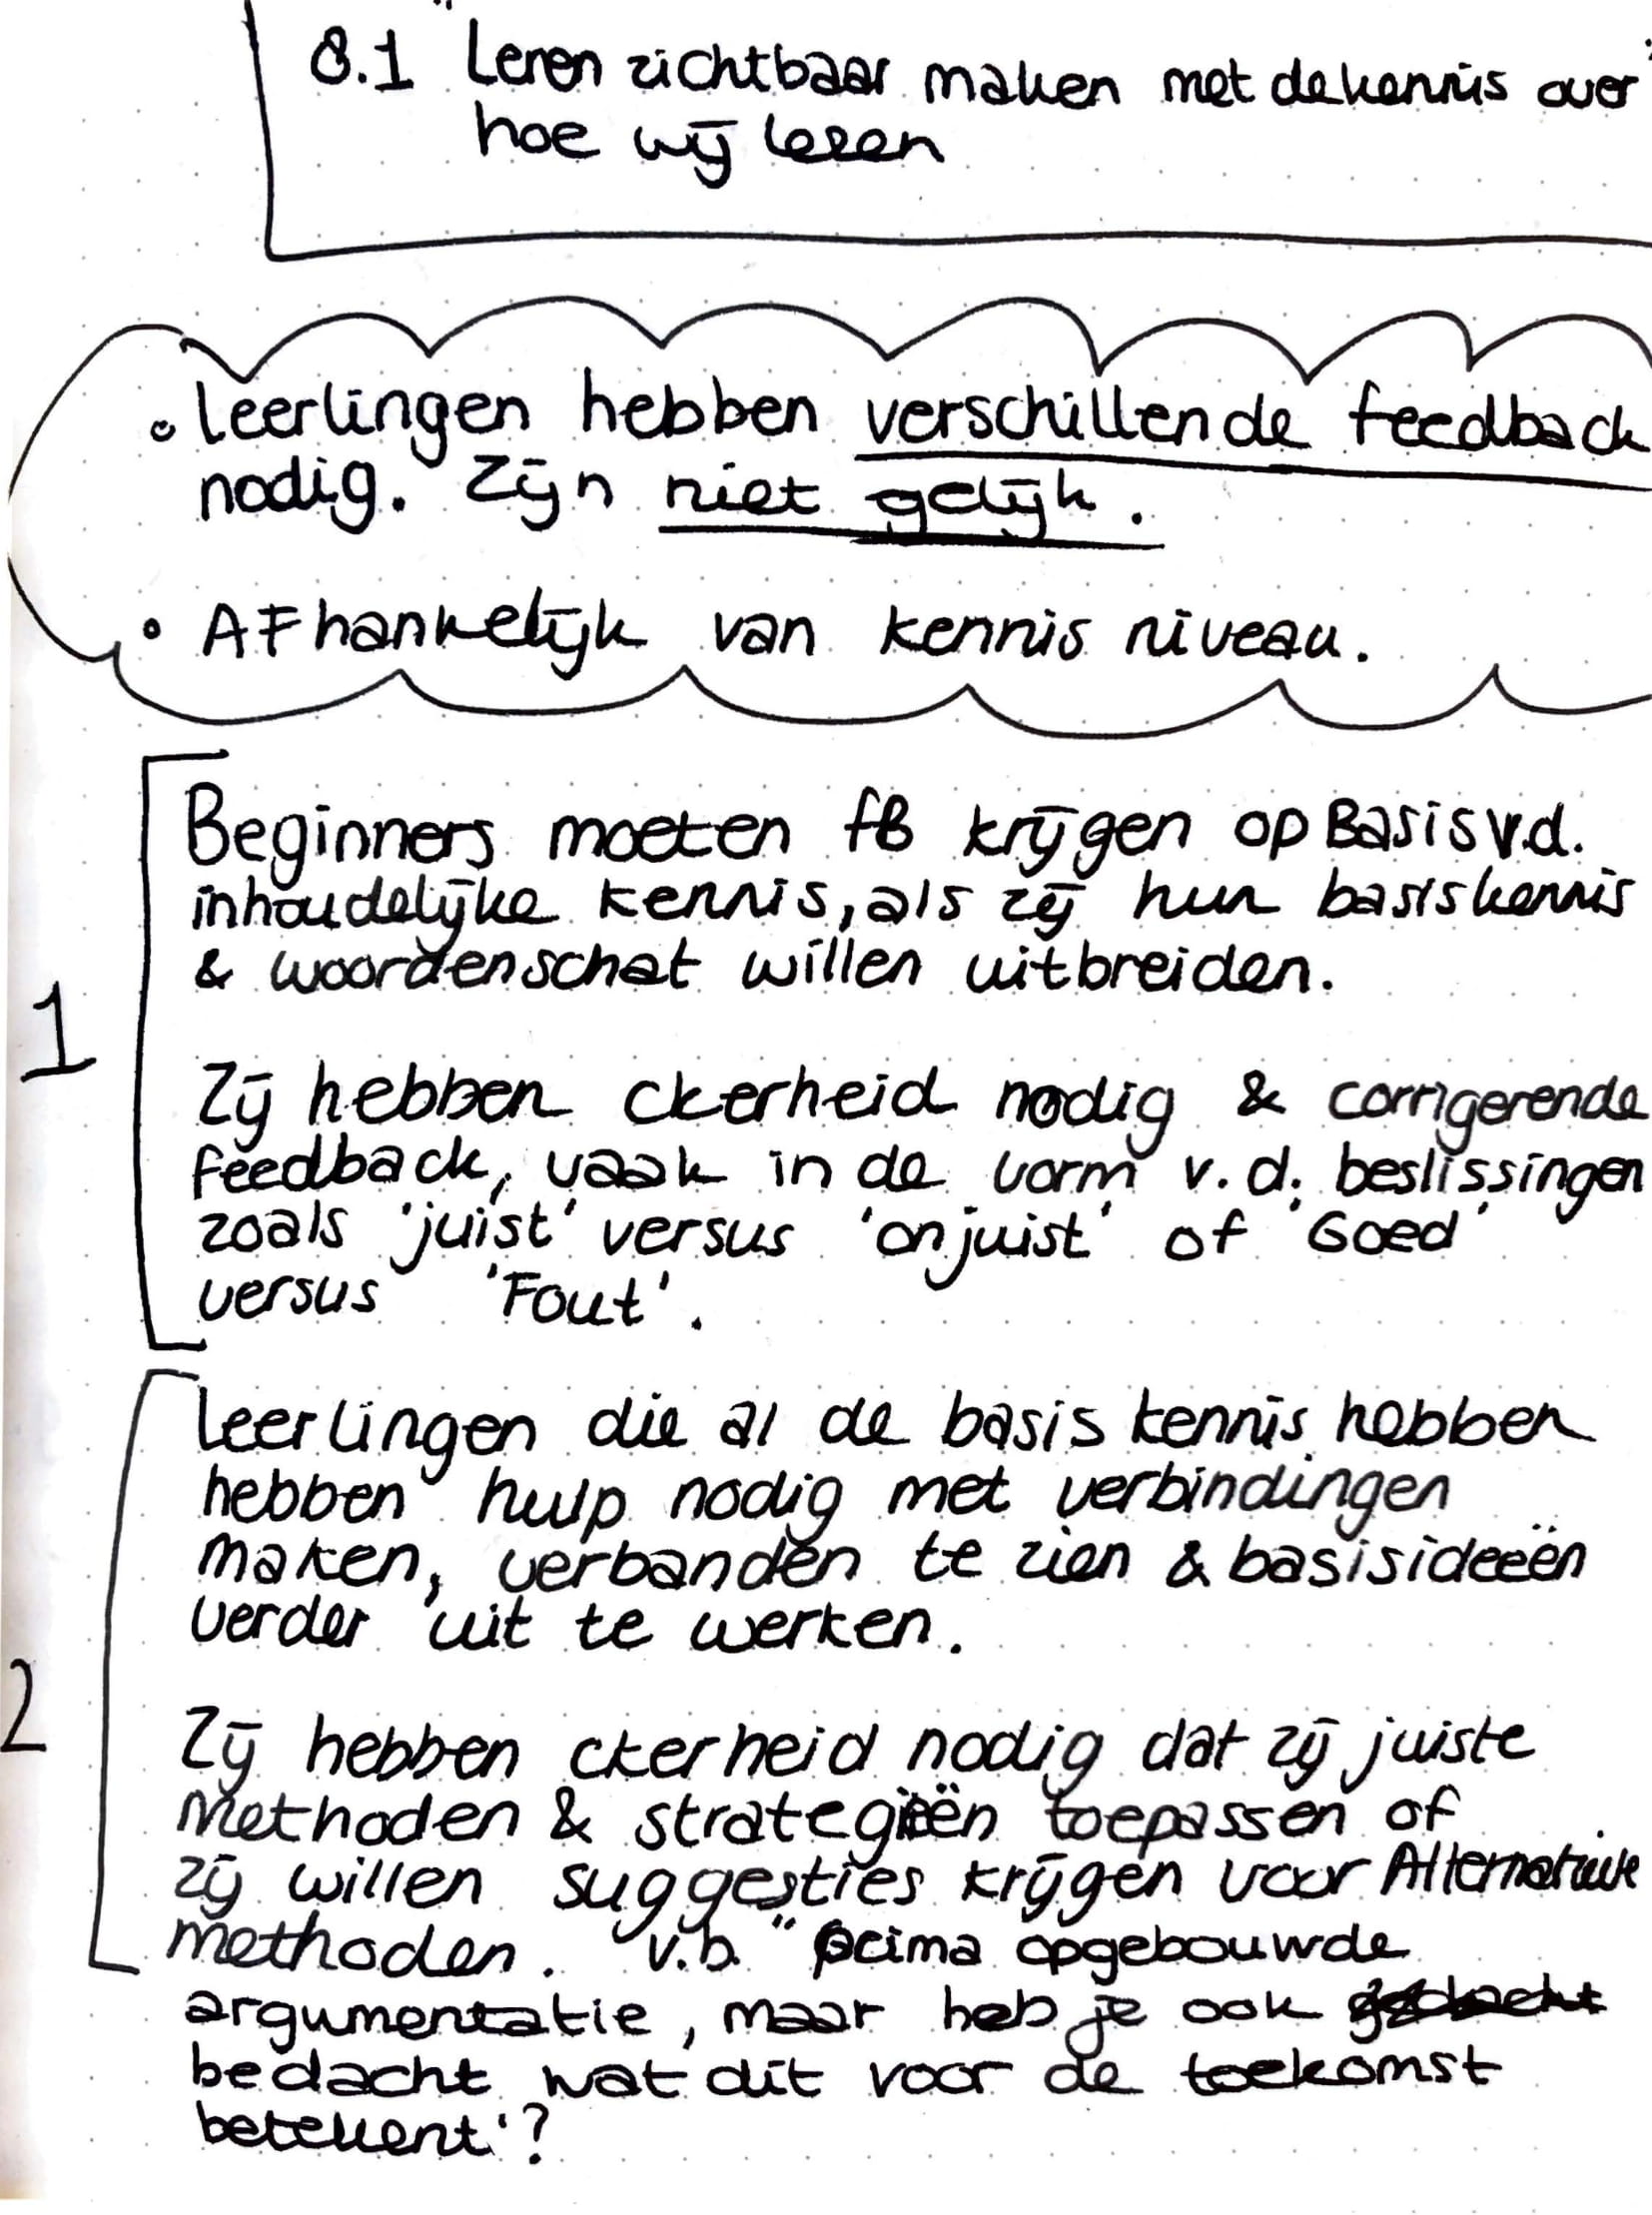 8.1 "Leren zichtbaar maken met de kennis over
hoe wij leren
• Leerlingen hebben verschillende feedback
nodig. Zijn niet gelijk.
• Afhankelijk van kennis niveau.
Beginners moeten fB krijgen op Basis v.d.
inhoudelijke kennis, als zij hun basiskennis
& woordenschat willen uitbreiden.
1
Zij hebben ckerheid nodig & corrigerende
feedback, vaak in de vorm v.d. beslissingen
zoals 'juist' versus 'onjuist' of 'Goed'
versus 'Fout'.
Leerlingen die al de basis kennis hebben
hebben hulp nodig met verbindingen
maken, verbanden te zien & basisideeën
verder uit te werken.
2
Zij hebben ckerheid nodig dat zij juiste
Methoden & strategieën toepassen of
zij willen suggesties krijgen voor Alternatieve
methoden. v.b. "prima opgebouwde
argumentatie, maar heb je ook
bedacht wat dit voor de toekomst
betekent'?